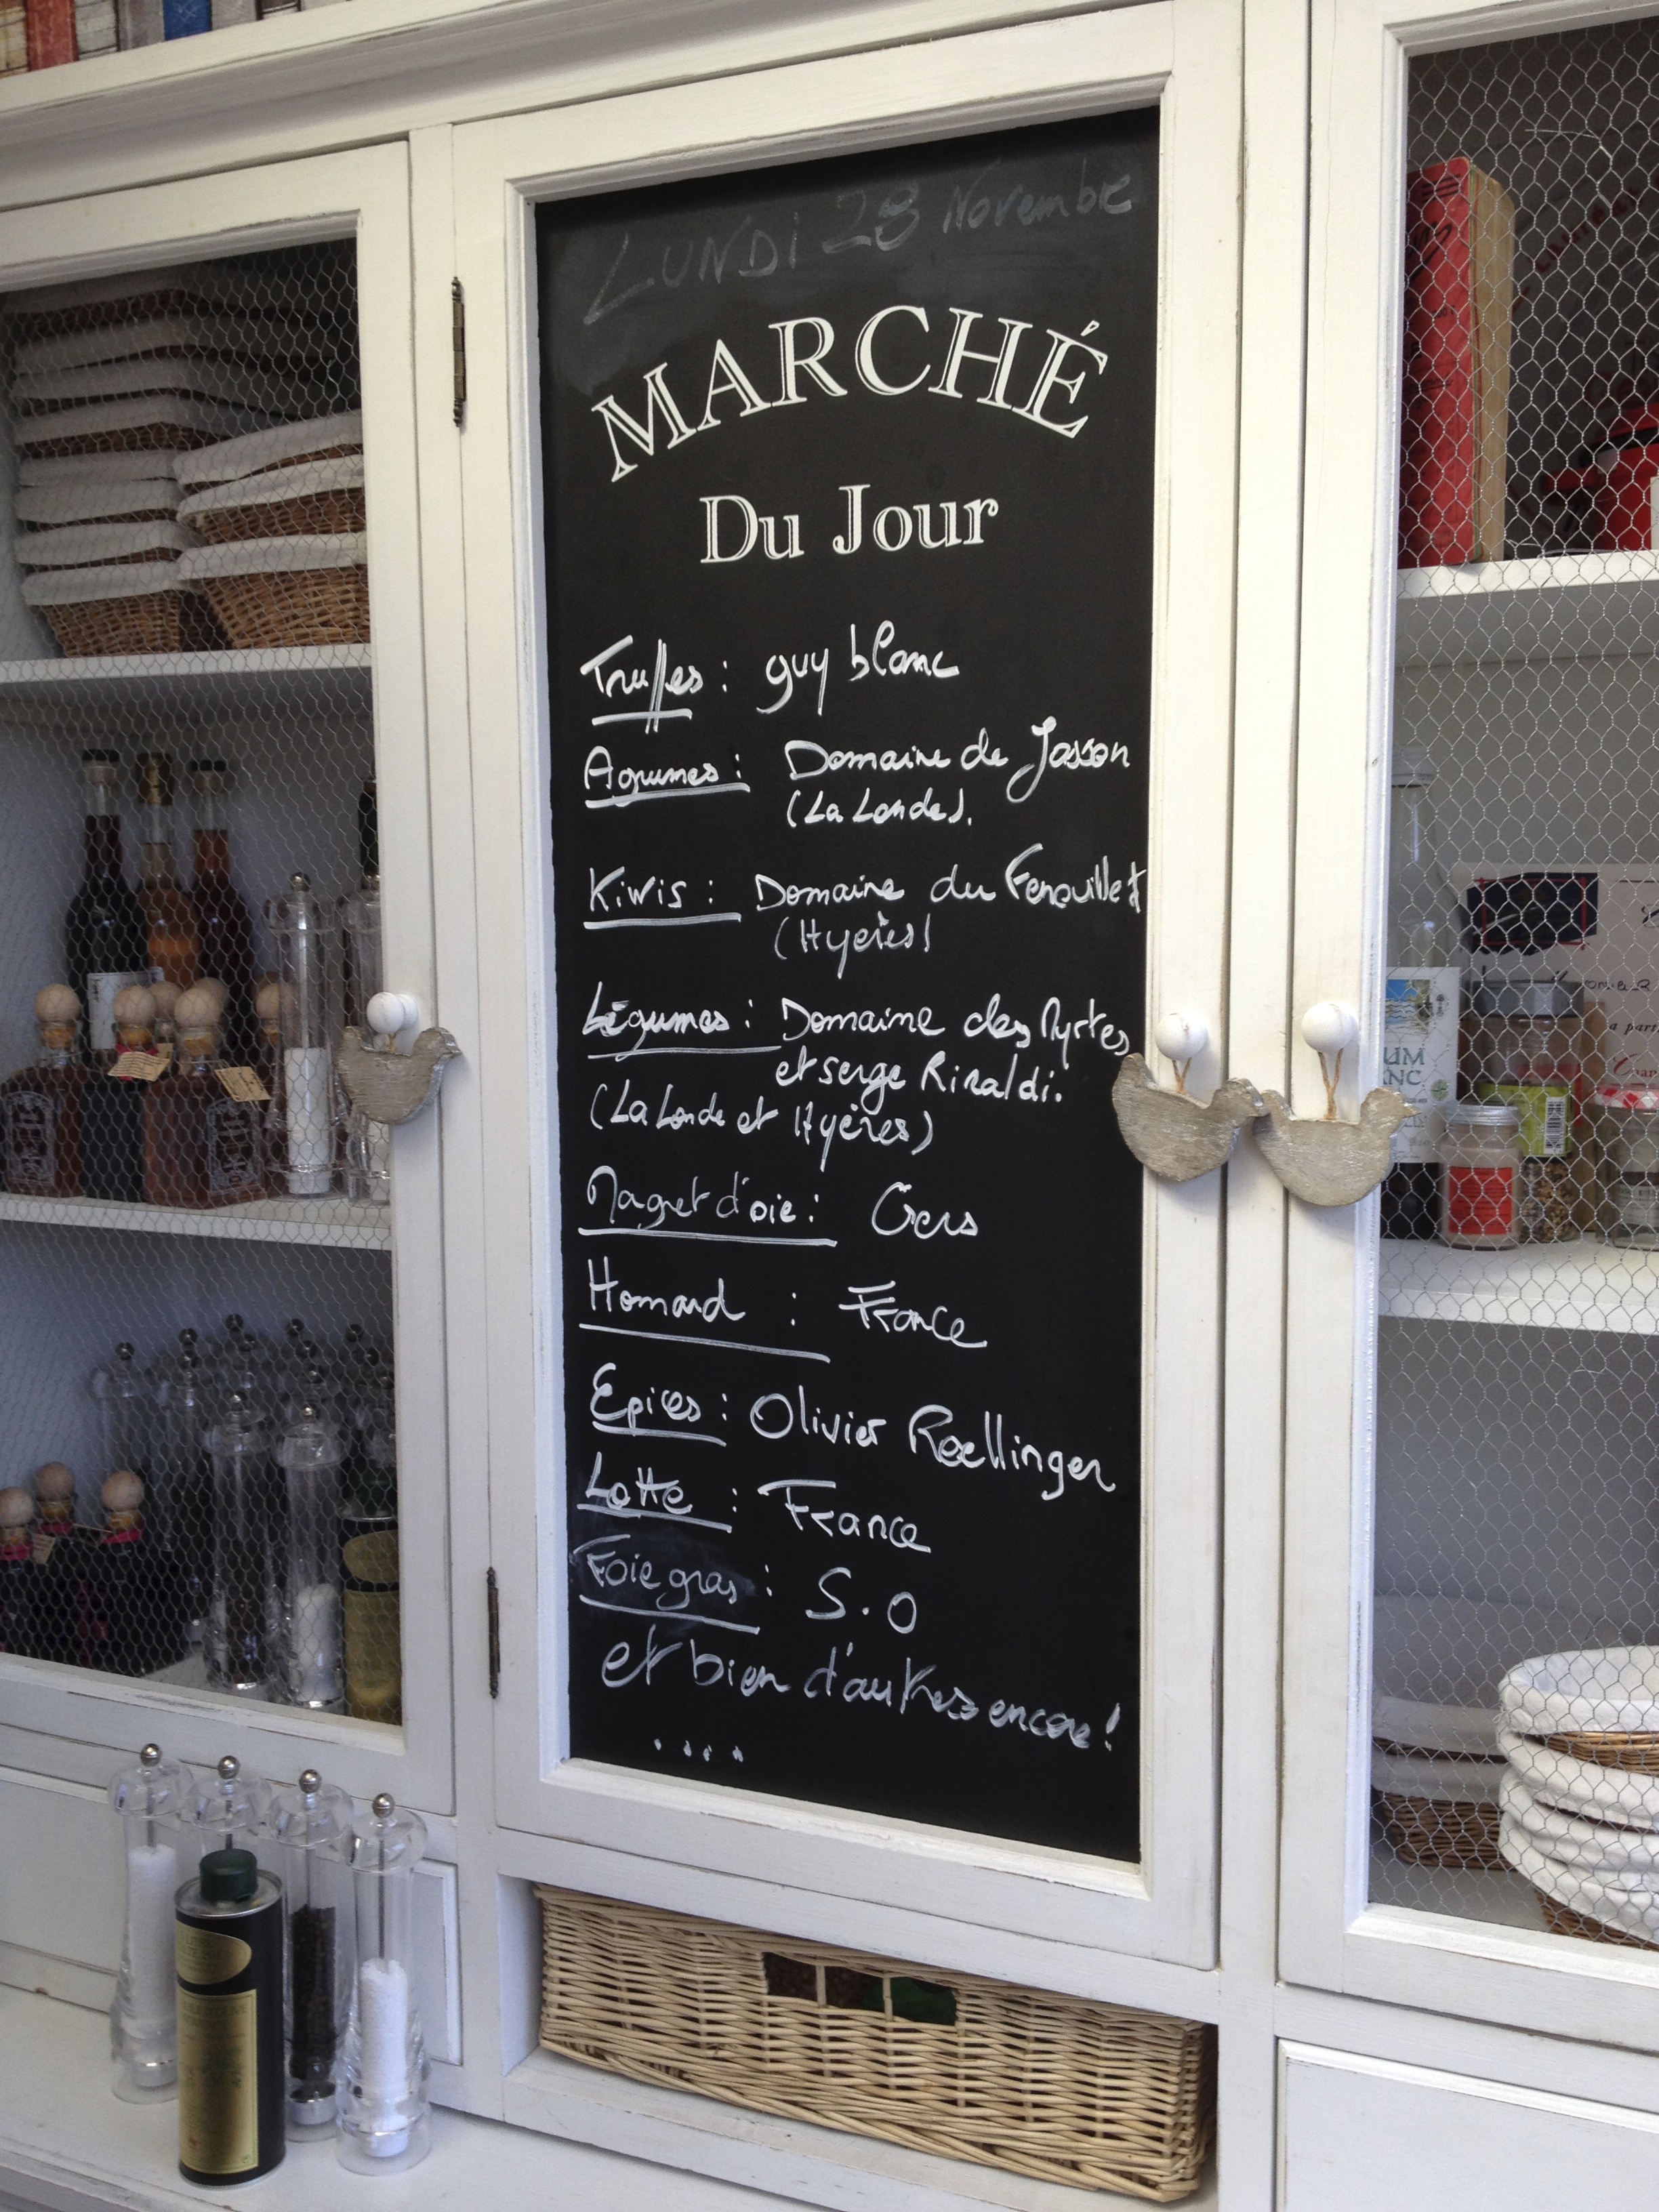 LUNDI 28 Novembre
MARCHÉ
Du Jour
Truffes : guy blanc
Agrumes : Domaine de Jasson
(La Londe).
Kiwis : Domaine du Fenouillet
(Hyères)
Légumes : Domaine des Myrtes
et serge Rinaldi.
(La Londe et Hyères)
Magret d'oie : Gers
Homard : France
Epices : Olivier Roellinger
Lotte : France
Foie gras : S.O
et bien d'autres encore !
....